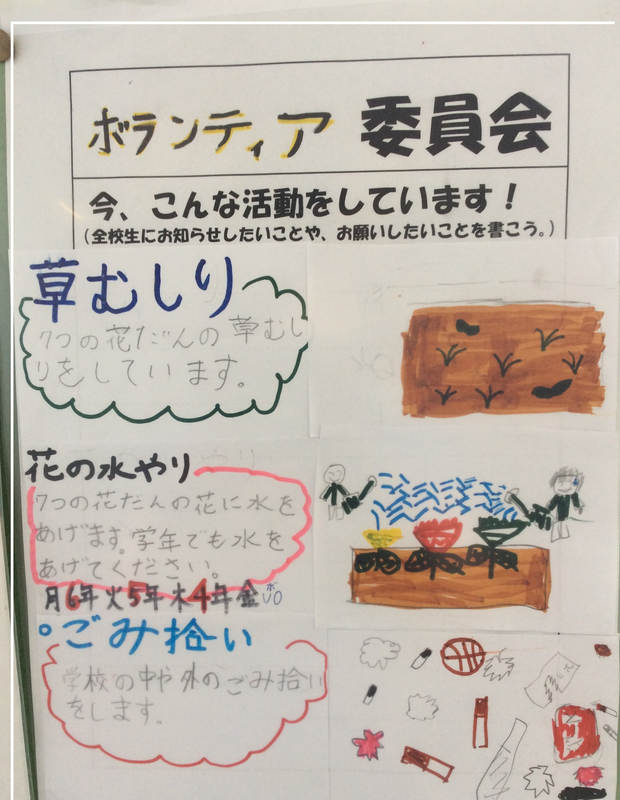 ボランティア 委員会
今、こんな活動をしています！
（全校生にお知らせしたいことや、お願いしたいことを書こう。）
草むしり
7つの花だんの草むし
りをしています。
花の水やり
7つの花だんの花に水を
あげます。学年でも水を
あげてください。
月6年火5年木4年金ボ
ごみ拾い
学校の中や外のごみ拾い
をします。